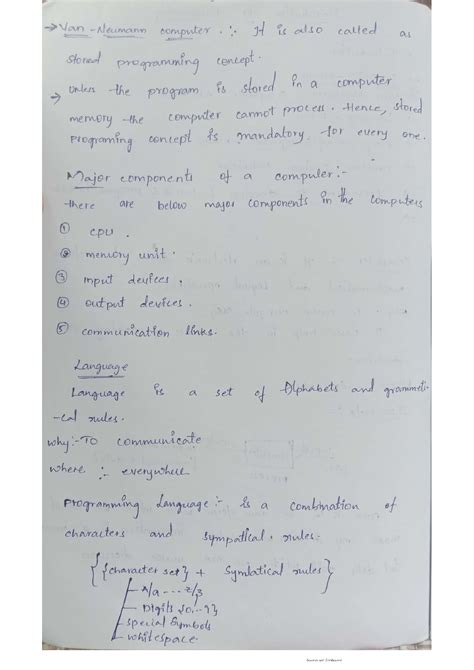 → Van - Neumann computer :- It is also called as
stored programming concept.
→ unless the program is stored in a computer
memory the computer cannot process. Hence, stored
programing concept is mandatory for every one.
Major components of a computer :-
there are below major components in the computers
① CPU.
② memory unit.
③ input devices.
④ output devices.
⑤ communication links.
Language
Language is a set of Alphabets and grammeti-
-cal rules.
why:- To communicate
where :- everywhere
Programming Language :- is a combination of
characters and sympatical rules.
{{character set} + Symbatical rules}
Digits {0..9}
special symbols
whitespace.